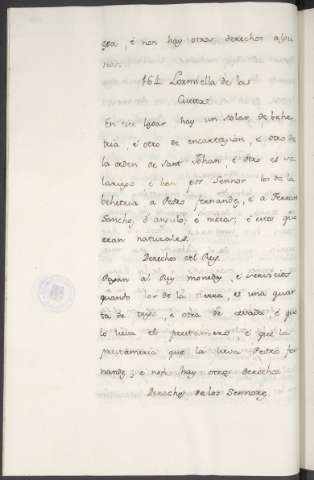 gea, é non hay otros derechos algu
nos.
164 Lormiella de las
Cuetas
En este lgoar hay un solar de behe
tria, é otro de encartacion, é otro de
la orden de Sant Johan, é otro es so
lariego é han por Sennor los de la
behetria a Pedro fernandz, é a Ferrant
Sanchez d ayala, é nietas; é estos que
eran naturales.
Derechos del Rey.
Pagan al Rey moneda, é servicios
quando los de la tierra, es una quar
ta de trigo, é otra de cevada, é que
lo lieva el prestamero, é que la
prestameria que la lieva Pedro fer
nandz; é non hay otros derechos
Derechos de los Sennores